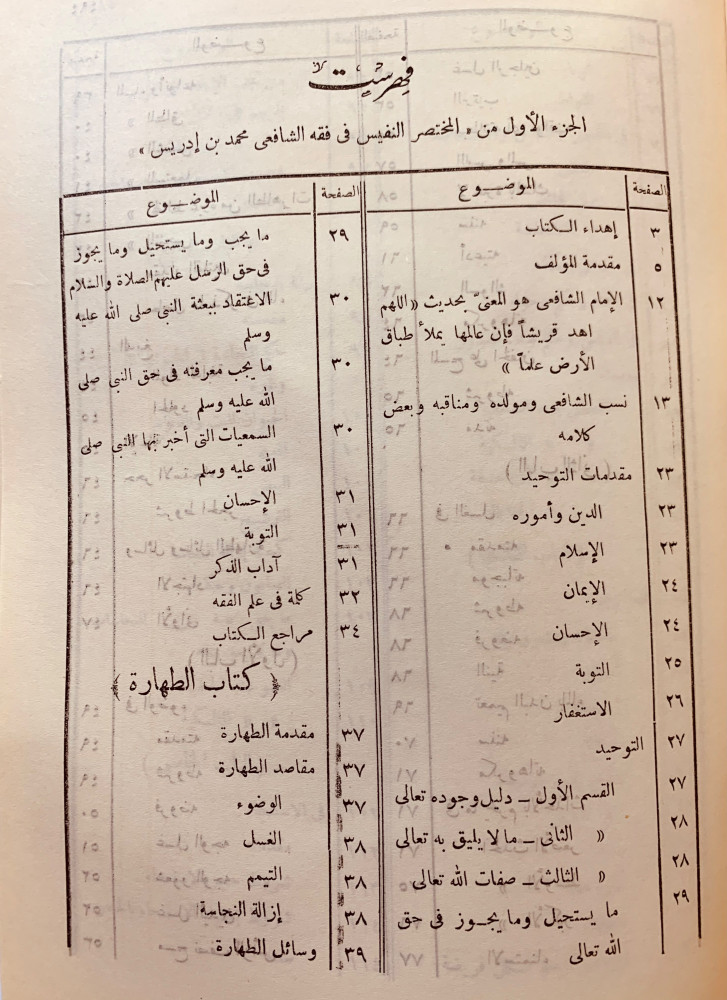 فهرست
الجزء الأول من « المختصر النفيس فى فقه الشافعى محمد بن إدريس »
الصفحة الموضوع
٣ إهداء الكتاب
٥ مقدمة المؤلف
١٢ الإمام الشافعى هو المعنىّ بحديث « اللهم
اهد قريشاً فإن عالمها يملأ طباق
الأرض علماً »
١٣ نسب الشافعى ومولده ومناقبه وبعض
كلامه
٢٣ مقدمات التوحيد
٢٣ الدين وأموره
٢٣ الإسلام
٢٤ الإيمان
٢٤ الإحسان
٢٥ التوبة
٢٦ الاستغفار
٢٧ التوحيد
٢٧ القسم الأول – دليل وجوده تعالى
٢٨ « الثانى – ما لا يليق به تعالى
٢٨ « الثالث – صفات الله تعالى
٢٩ ما يستحيل وما يجوز فى حق
الله تعالى
الصفحة الموضوع
٢٩ ما يجب وما يستحيل وما يجوز
فى حق الرسل عليهم الصلاة والسلام
٣٠ الاعتقاد ببعثة النبي صلى الله عليه
وسلم
٣٠ ما يجب معرفته فى حق النبي صلى
الله عليه وسلم
٣٠ السمعيات التى أخبر بها النبي صلى
الله عليه وسلم
٣١ الإحسان
٣١ التوبة
٣١ آداب الذكر
٣٢ كلمة فى علم الفقه
٣٤ مراجع الكتاب
﴿ كتاب الطهارة ﴾
٣٧ مقدمة الطهارة
٣٧ مقاصد الطهارة
٣٧ الوضوء
٣٨ الغسل
٣٨ التيمم
٣٨ إزالة النجاسة
٣٩ وسائل الطهارة